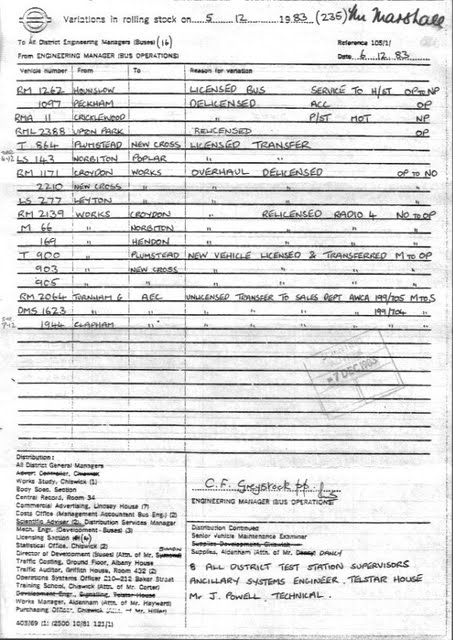 Variations in rolling stock on 5 12 1983 (235) Mr Marshall
To All District Engineering Managers (Buses) (16) Reference 105/1/
From ENGINEERING MANAGER (BUS OPERATIONS) Date 6.12.83
Vehicle number From To Reason for variation
RM 1262 HOUNSLOW LICENSED BUS SERVICE TO H/ST OP TO NP
1097 PECKHAM DELICENSED ACC OP
RMA 11 CRICKLEWOOD " P/ST MOT NP
RML 2388 UPTON PARK RELICENSED OP
T 864 PLUMSTEAD NEW CROSS LICENSED TRANSFER
6-12 LS 143 NORBITON POPLAR " "
RM 1171 CROYDON WORKS OVERHAUL DELICENSED OP TO NO
2210 NEW CROSS " " " "
LS 277 LEYTON " " " "
RM 2139 WORKS CROYDON " RELICENSED RADIO 4 NO TO OP
M 66 " NORBITON " " "
169 " HENDON " " "
T 900 " PLUMSTEAD NEW VEHICLE LICENSED & TRANSFERRED M TO OP
903 " NEW CROSS " " " "
905 " " " " " "
RM 2064 TURNHAM G AEC UNLICENSED TRANSFER TO SALES DEPT AWCA 199/705 M TO S
DMS 1623 " " " " " 199/704 "
7-12 1944 CLAPHAM " " " " " "
7 DEC 1983
Distribution:
All District General Managers
Advert Controller, Chiswick
Works Study, Chiswick (1)
Body Spec. Section
Central Record, Room 34
Commercial Advertising, Lindsey House (7)
Costs Office (Management Accountant Bus Eng.) (2)
Scientific Adviser (2), Distribution Services Manager
Mech. Eng. (Development - Buses) (3)
Licensing Section
Statistical Office, Chiswick (2)
Director of Development (Buses) (Attn. of Mr.
Traffic Costing, Ground Floor, Albany House
Traffic Auditor, Griffith House, Room 422 (2)
Operations Systems Officer 210-212 Baker Street
Training School, Chiswick (Attn. of Mr. Carter)
Development Eng., Signalling, Telstar House
Works Manager, Aldenham (Attn. of Mr. Hayward)
Purchasing Officer, Chiswick (Attn. of Mr. Hiller)
403/69 (1) (2500 10/81 121/1)
C.F. Greybrook pp.
ENGINEERING MANAGER (BUS OPERATIONS)
Distribution Continued
Senior Vehicle Maintenance Examiner
Supplies Development, Chiswick
Supplies, Aldenham (Attn. of Mr. DANCY)
8 ALL DISTRICT TEST STATION SUPERVISORS
ANCILLARY SYSTEMS ENGINEER, TELSTAR HOUSE
Mr J. POWELL, TECHNICAL.